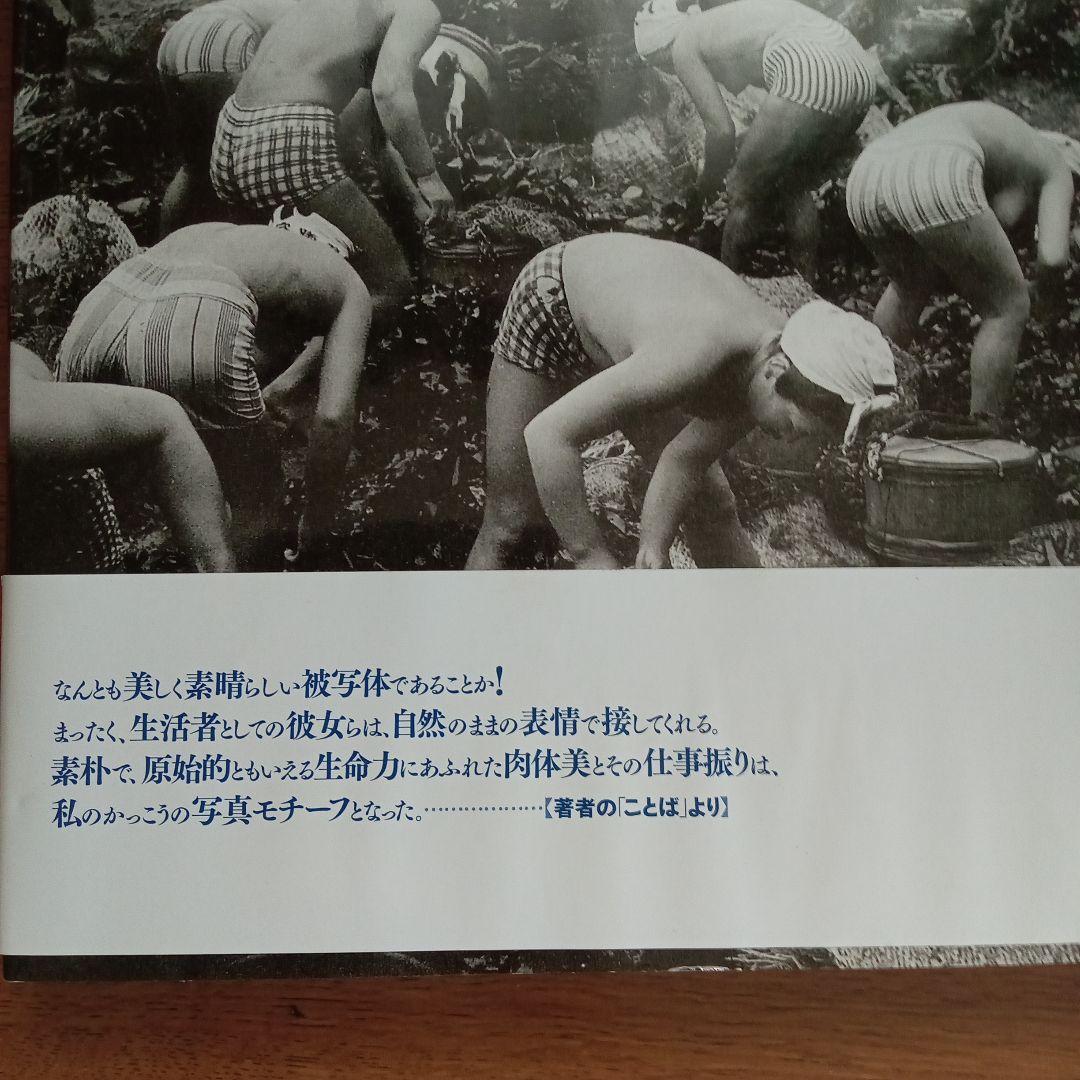 なんとも美しく素晴らしい被写体であることか!
まったく、生活者としての彼女らは、自然のままの表情で接してくれる。
素朴で、原始的ともいえる生命力にあふれた肉体美とその仕事振りは、
私のかっこうの写真モチーフとなった。………………【著者の「ことば」より】